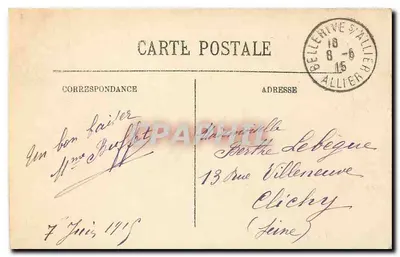 CARTE POSTALE
BELLERIVE S/ALLIER
16
8 -6
15
ALLIER
CORRESPONDANCE
ADRESSE
Un bon baiser
Mme Buffet
7 Juin 1915
Mademoiselle
Berthe Lebègue
13 Rue Villeneuve
Clichy
(Seine)